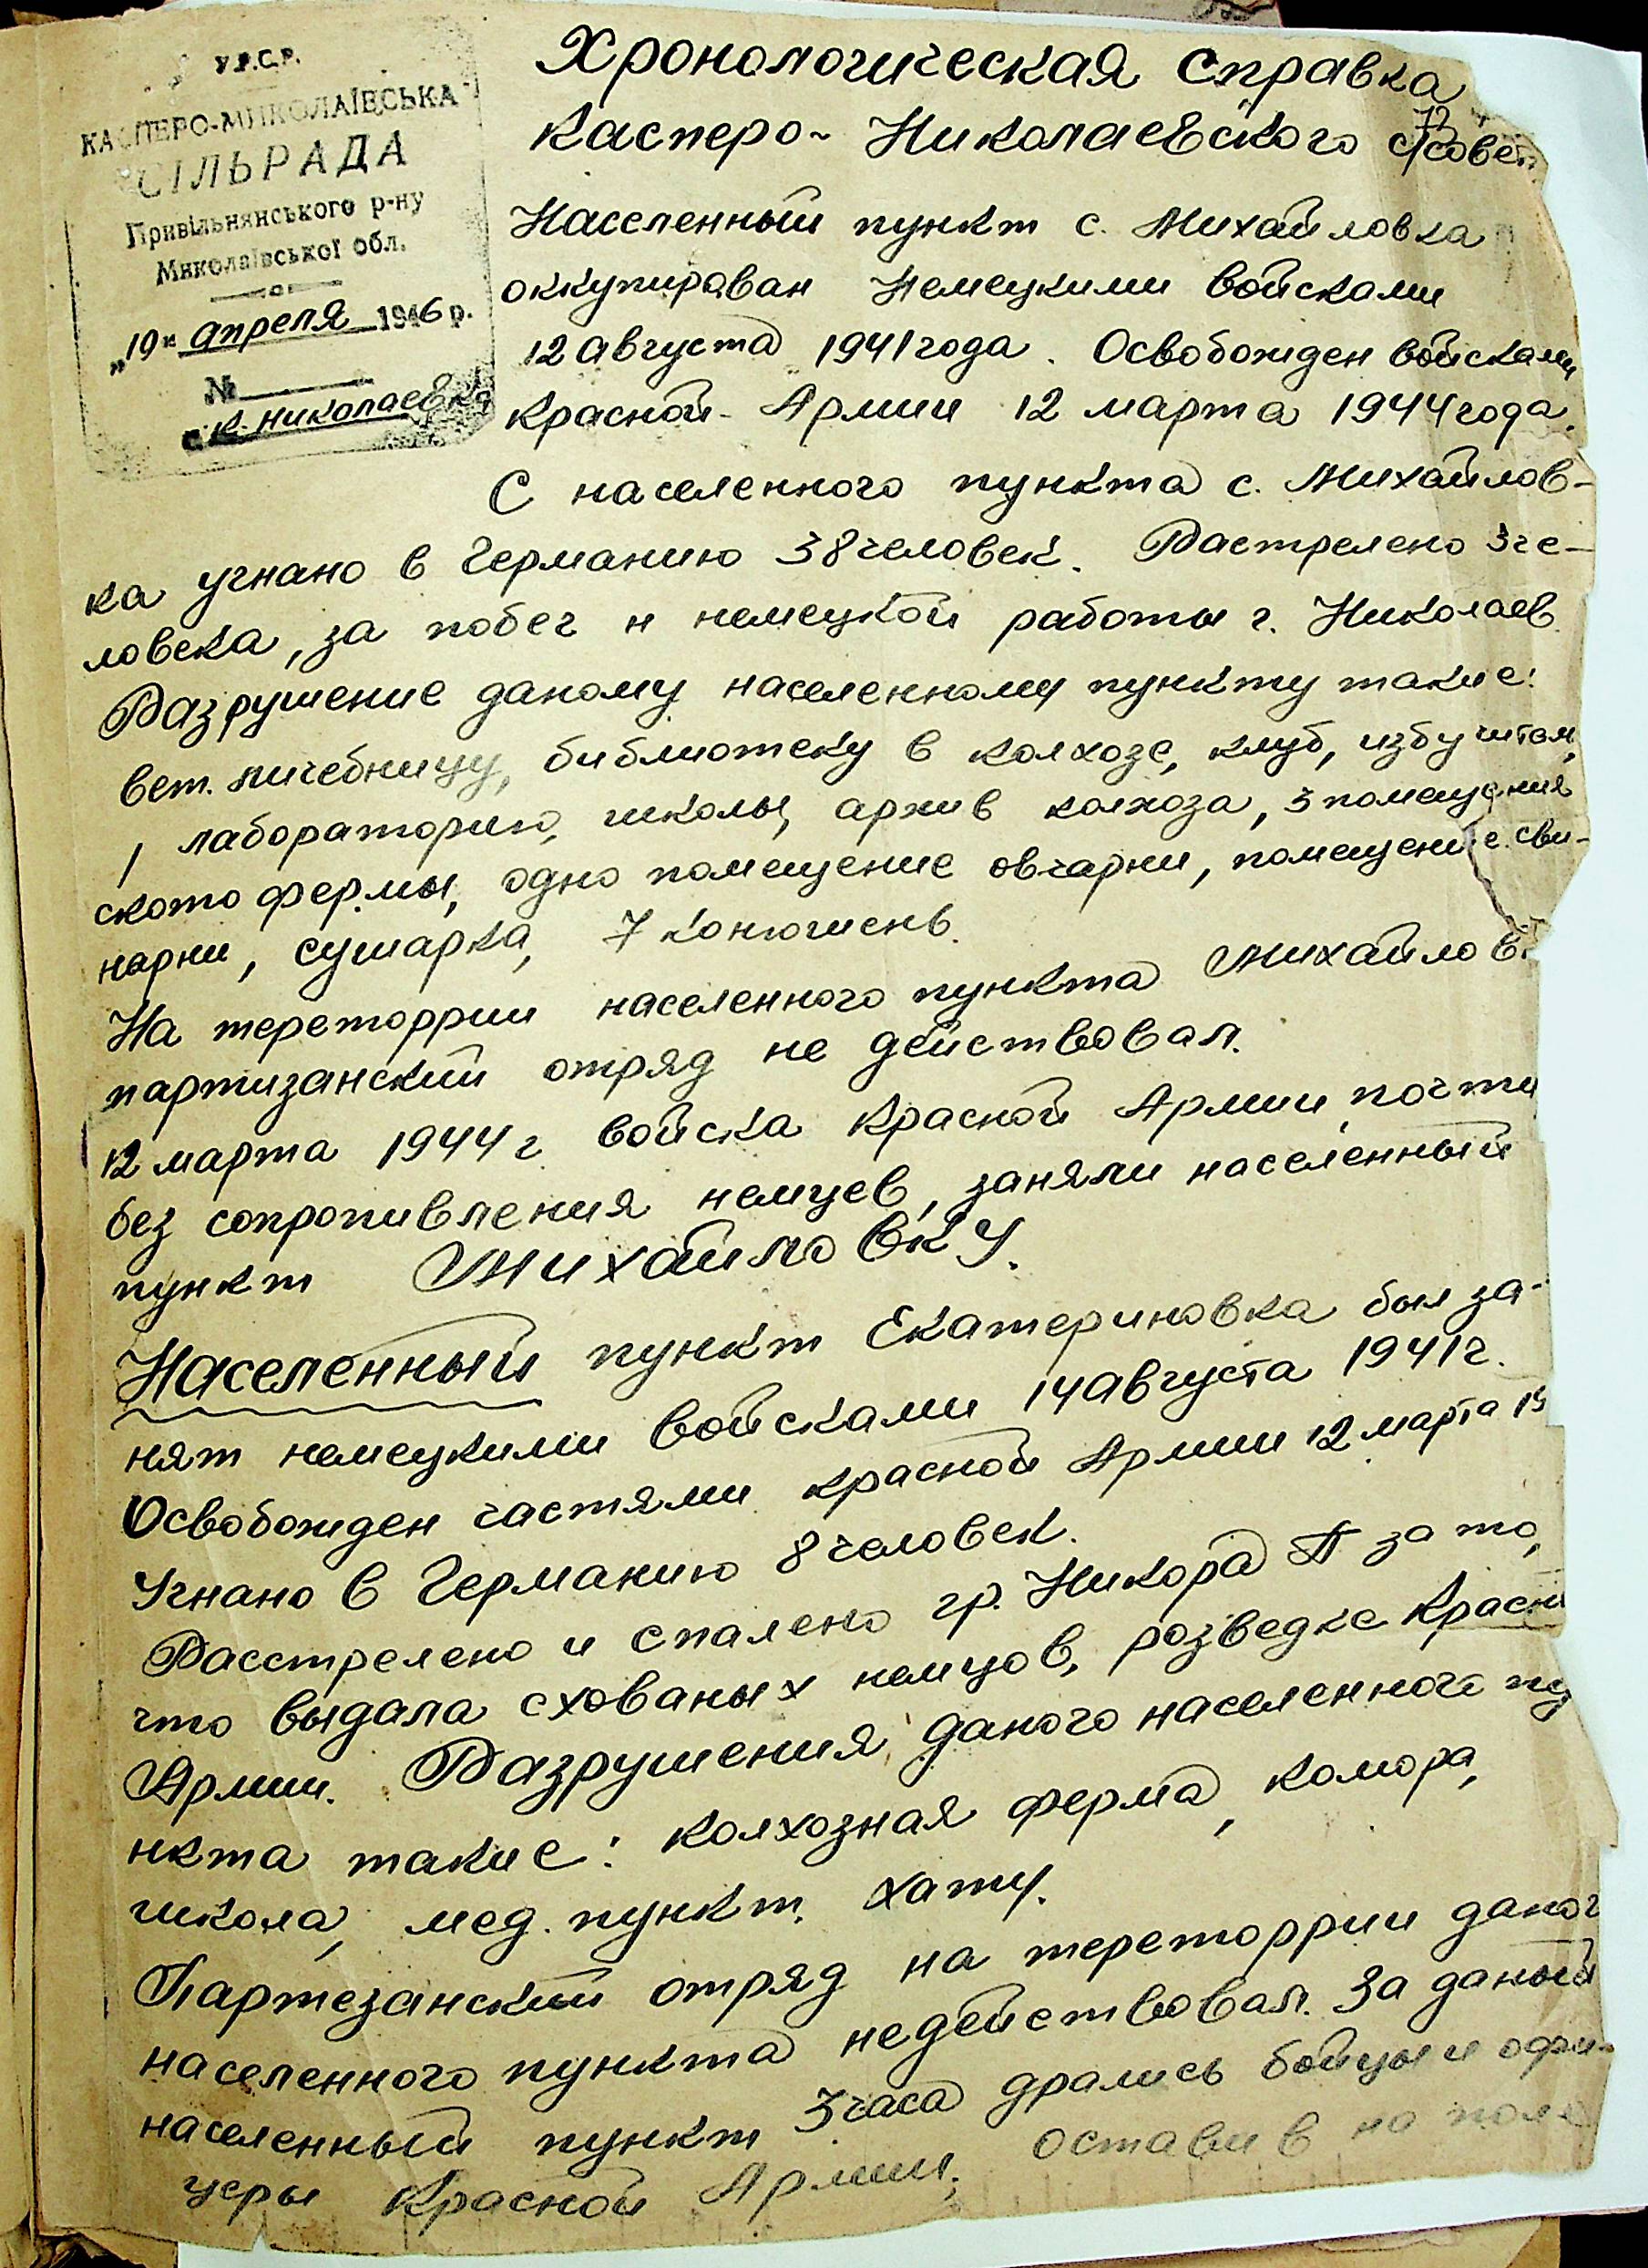 У.Р.С.Р.
КАСПЕРО-МИКОЛАЇВСЬКА
СІЛЬРАДА
Привільнянського р-ну
Миколаївської обл.
„19" апреля 1946 р.
№
с. К. Николаевка
Хронологическая справка
Касперо-Николаевского с/совет
Населенный пункт с. Михайловка
оккупираван немецкими войсками
12 августа 1941 года. Освобожден войсками
Красной Армии 12 марта 1944 года.
С населенного пункта с. Михайлов-
ка угнано в Германию 38 человек. Растрелено 3 че-
ловека, за побег н немецкой работы г. Николаев.
Разрушение даному населенному пункту такие:
вет. личебницу, библиотеку в колхозе, клуб, избу читал,
1 лабораторию, школы, архив колхоза, 3 помещения
ското фермы, одно помещение овчарни, помещение сви-
нарни, сушарка, 7 конюшень.
На тереторрии населенного пункта Михайловк
партизанский отряд не действовал.
12 марта 1944 г. войска Красной Армии, почти
без сопротивления немцев, заняли населенный
пункт Михайловку.
Населенный пункт Екатериновка был за-
нят немецкими войсками 14 августа 1941 г.
Освобожден частями красной Армии 12 марта 19
Угнано в Германию 8 человек.
Расстрелено и спалено гр. Никора П за то,
что выдала схованых немцов, розведке Красн
Армии. Разрушения даного населенного пу
нкта такие: колхозная ферма, комора,
школа, мед. пункт, хату.
Партезанский отряд на тереторрии даног
населенного пункта недействовал. За даный
населенный пункт 3 часа дрались бойцы и офи-
церы Красной Армии, оставив на поле